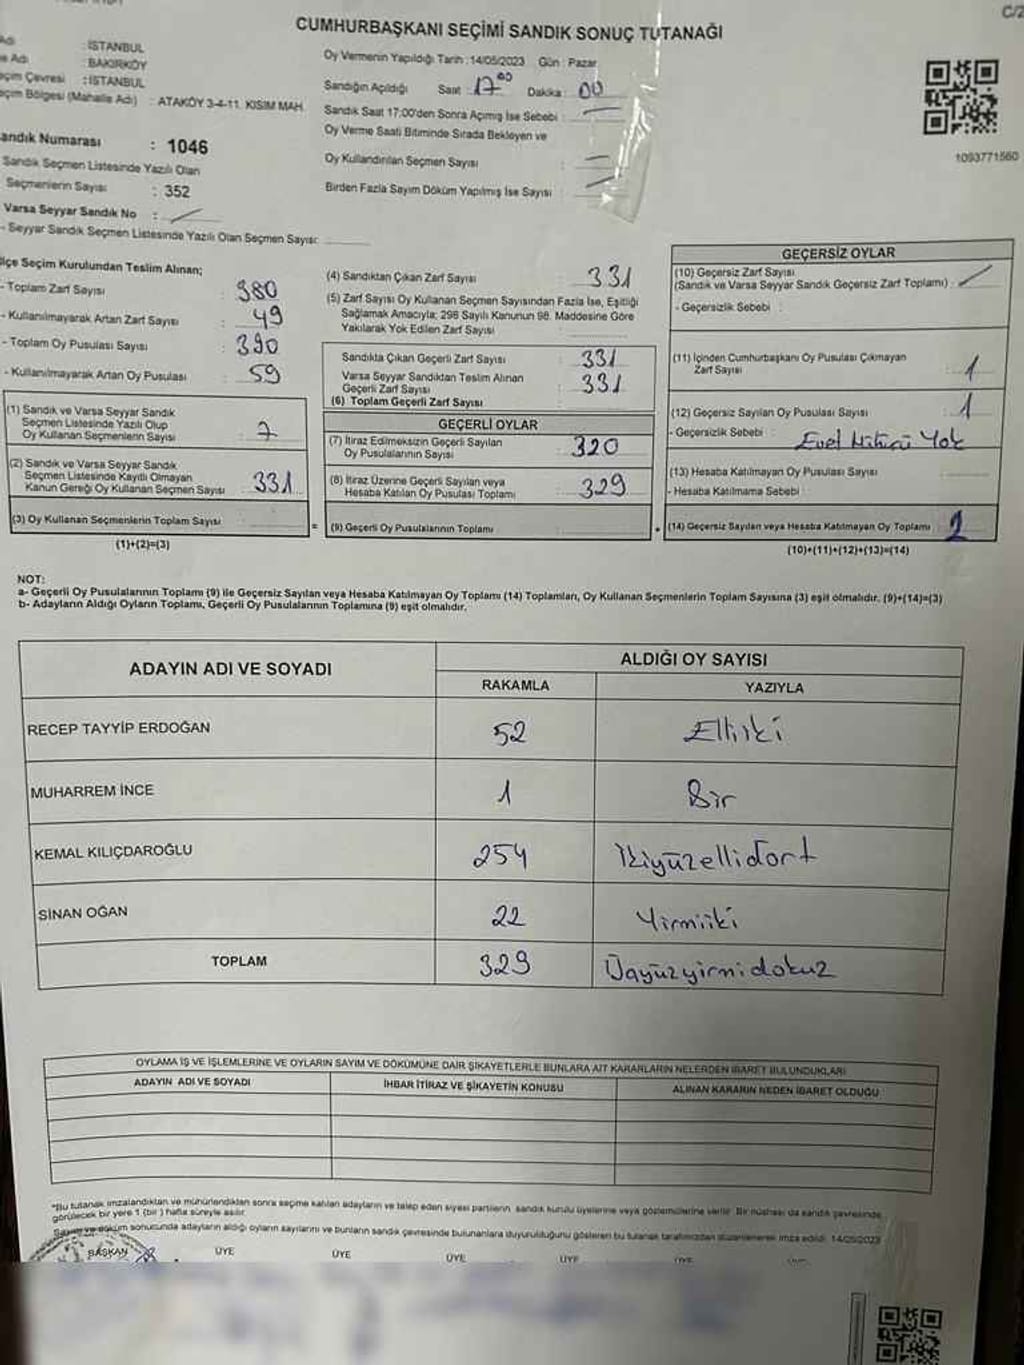 C/2
CUMHURBAŞKANI SEÇİMİ SANDIK SONUÇ TUTANAĞI
: İSTANBUL
: BAKIRKÖY
: İSTANBUL
(Mahalle Adı) : ATAKÖY 3-4-11. KISIM MAH.
Sandık Numarası : 1046
Sandık Seçmen Listesinde Yazılı Olan
Seçmenlerin Sayısı : 352
Varsa Seyyar Sandık No :
- Seyyar Sandık Seçmen Listesinde Yazılı Olan Seçmen Sayısı:
Oy Vermenin Yapıldığı Tarih : 14/05/2023 Gün : Pazar
Sandığın Açıldığı Saat : 17 00 Dakika : 00
Sandık Saat 17:00'den Sonra Açımış İse Sebebi :
Oy Verme Saati Bitiminde Sırada Bekleyen ve
Oy Kullandırılan Seçmen Sayısı :
Birden Fazla Sayım Döküm Yapılmış İse Sayısı :
1093771560
İlçe Seçim Kurulundan Teslim Alınan;
- Toplam Zarf Sayısı : 380
- Kullanılmayarak Artan Zarf Sayısı : 49
- Toplam Oy Pusulası Sayısı : 390
- Kullanılmayarak Artan Oy Pusulası : 59
(1) Sandık ve Varsa Seyyar Sandık
Seçmen Listesinde Yazılı Olup
Oy Kullanan Seçmenlerin Sayısı : 7
(2) Sandık ve Varsa Seyyar Sandık
Seçmen Listesinde Kayıtlı Olmayan
Kanun Gereği Oy Kullanan Seçmen Sayısı : 331
(3) Oy Kullanan Seçmenlerin Toplam Sayısı :
(1)+(2)=(3)
(4) Sandıktan Çıkan Zarf Sayısı : 331
(5) Zarf Sayısı Oy Kullanan Seçmen Sayısından Fazla İse, Eşitliği
Sağlamak Amacıyla; 298 Sayılı Kanunun 98. Maddesine Göre
Yakılarak Yok Edilen Zarf Sayısı :
Sandıkta Çıkan Geçerli Zarf Sayısı : 331
Varsa Seyyar Sandıktan Teslim Alınan
Geçerli Zarf Sayısı : 331
(6) Toplam Geçerli Zarf Sayısı :
GEÇERLİ OYLAR
(7) İtiraz Edilmeksizin Geçerli Sayılan
Oy Pusulalarının Sayısı : 320
(8) İtiraz Üzerine Geçerli Sayılan veya
Hesaba Katılan Oy Pusulası Toplamı : 329
= (9) Geçerli Oy Pusulalarının Toplamı :
GEÇERSİZ OYLAR
(10) Geçersiz Zarf Sayısı
(Sandık ve Varsa Seyyar Sandık Geçersiz Zarf Toplamı) :
- Geçersizlik Sebebi :
(11) İçinden Cumhurbaşkanı Oy Pusulası Çıkmayan
Zarf Sayısı : 1
(12) Geçersiz Sayılan Oy Pusulası Sayısı : 1
- Geçersizlik Sebebi : Evet Mührü Yok
(13) Hesaba Katılmayan Oy Pusulası Sayısı :
- Hesaba Katılmama Sebebi :
+ (14) Geçersiz Sayılan veya Hesaba Katılmayan Oy Toplamı : 2
(10)+(11)+(12)+(13)=(14)
NOT:
a- Geçerli Oy Pusulalarının Toplamı (9) ile Geçersiz Sayılan veya Hesaba Katılmayan Oy Toplamı (14) Toplamları, Oy Kullanan Seçmenlerin Toplam Sayısına (3) eşit olmalıdır. (9)+(14)=(3)
b- Adayların Aldığı Oyların Toplamı, Geçerli Oy Pusulalarının Toplamına (9) eşit olmalıdır.
ADAYIN ADI VE SOYADI ALDIĞI OY SAYISI
RAKAMLA YAZIYLA
RECEP TAYYİP ERDOĞAN 52 Elliiki
MUHARREM İNCE 1 Bir
KEMAL KILIÇDAROĞLU 254 İkiyüzellidört
SİNAN OĞAN 22 Yirmiiki
TOPLAM 329 Üçyüzyirmidokuz
OYLAMA İŞ VE İŞLEMLERİNE VE OYLARIN SAYIM VE DÖKÜMÜNE DAİR ŞİKAYETLERLE BUNLARA AİT KARARLARIN NELERDEN İBARET BULUNDUKLARI
ADAYIN ADI VE SOYADI İHBAR İTİRAZ VE ŞİKAYETİN KONUSU ALINAN KARARIN NEDEN İBARET OLDUĞU
*Bu tutanak imzalandıktan ve mühürlendikten sonra seçime katılan adayların ve talep eden siyasi partilerin sandık kurulu üyelerine veya gözlemcilerine verilir. Bir nüshası da sandık çevresinde
görülecek bir yere 1 (bir) hafta süreyle asılır.
Sayım ve döküm sonucunda adayların aldığı oyların sayılarını ve bunların sandık çevresinde bulunanlara duyurulduğunu gösteren bu tutanak tarafımızdan düzenlenerek imza edildi. 14/05/2023
BAŞKAN ÜYE ÜYE ÜYE ÜYE ÜYE